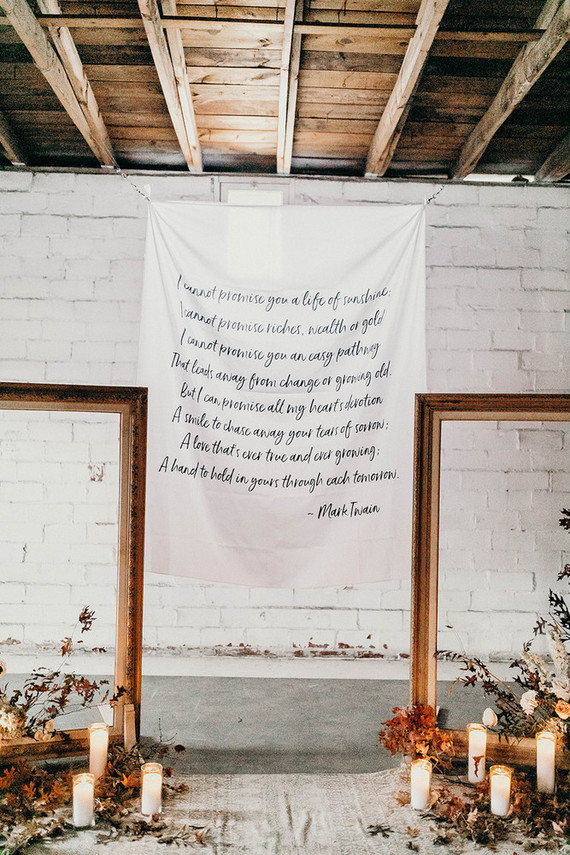 I cannot promise you a life of sunshine;
I cannot promise riches, wealth or gold
I cannot promise you an easy pathway
That leads away from change or growing old.
But I can promise all my heart's devotion
A smile to chase away your tears of sorrow;
A love that's ever true and ever growing;
A hand to hold in yours through each tomorrow.
~ Mark Twain